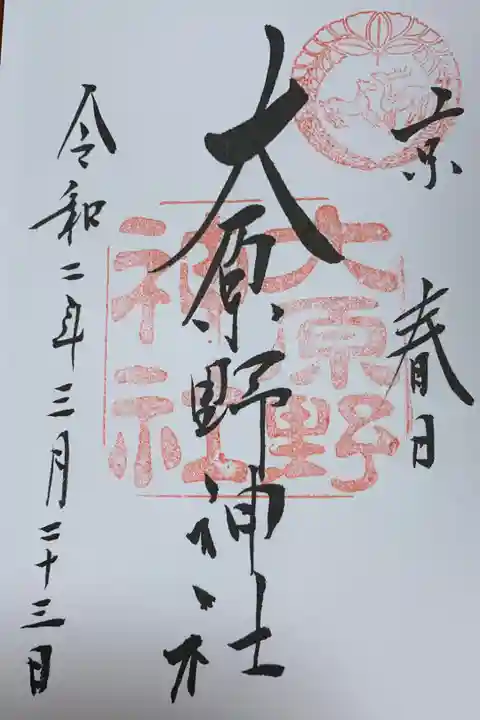 京 春日
大原野神社
大原野
神社
令和二年三月二十三日